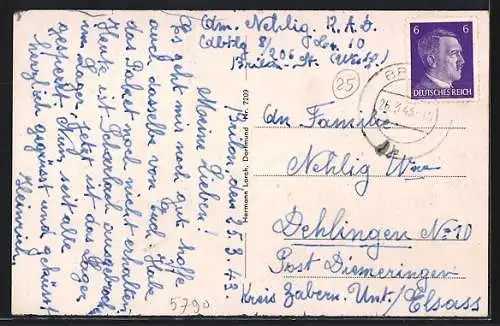 Abm. Nehlig R.A.D.
Abtlg 8/206 Zen. 10
Brilon-St. (Westf.)
Brilon, den 25.3.43.
Meine Lieben!
Es geht mir noch gut hoffe
auch dasselbe von Euch. Habe
das Paket noch nicht erhalten.
Heute ist Scharlach ausgebrochen
im Lager, jetzt ist das Lager
gesperrt. Nun, seit alle
herzlich gegrüsst und geküsst
Heinrich
Hermann Lorch, Dortmund Nr. 7209
25
6 6
DEUTSCHES REICH
BR
26.3.43
An Familie
Nehlig Wwe
Dehlingen No 10
Post Diemeringen
Kreis Zabern Unt/Elsass
5790